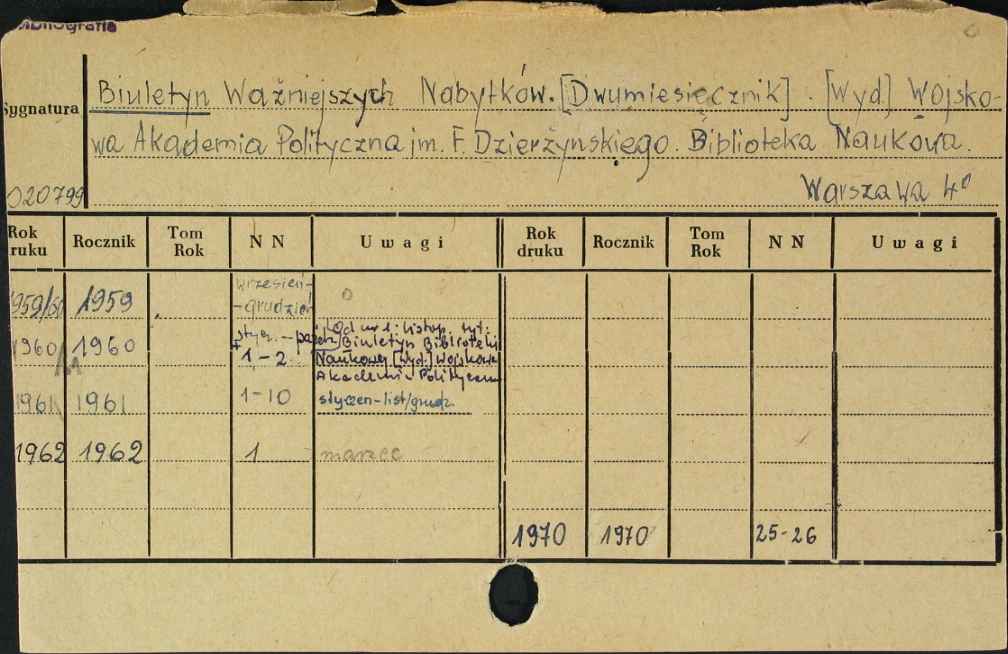 Bibliografia
Sygnatura
Biuletyn Ważniejszych Nabytków. [Dwumiesięcznik]. [Wyd] Wojsko-
wa Akademia Polityczna im. F. Dzierżyńskiego. Biblioteka Naukowa.
020799 Warszawa 4°
Rok druku Rocznik Tom Rok N N Uwagi Rok druku Rocznik Tom Rok N N Uwagi
1959/60 1959 wrzesień-
-grudzień
stycz. - paźdz. [Od nr 1: listop. tyt:
1960/61 1960 + 1-2 Biuletyn Biblioteki
Naukowej [Wyd.] Wojskowa
Akademia Polityczna
1961 1961 1-10 styczen-list/grudz.
1962 1962 1 marzec
1970 1970 25-26